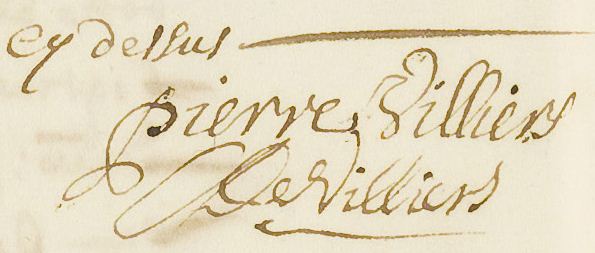 cy dessus
pierre Villiers
DeVilliers